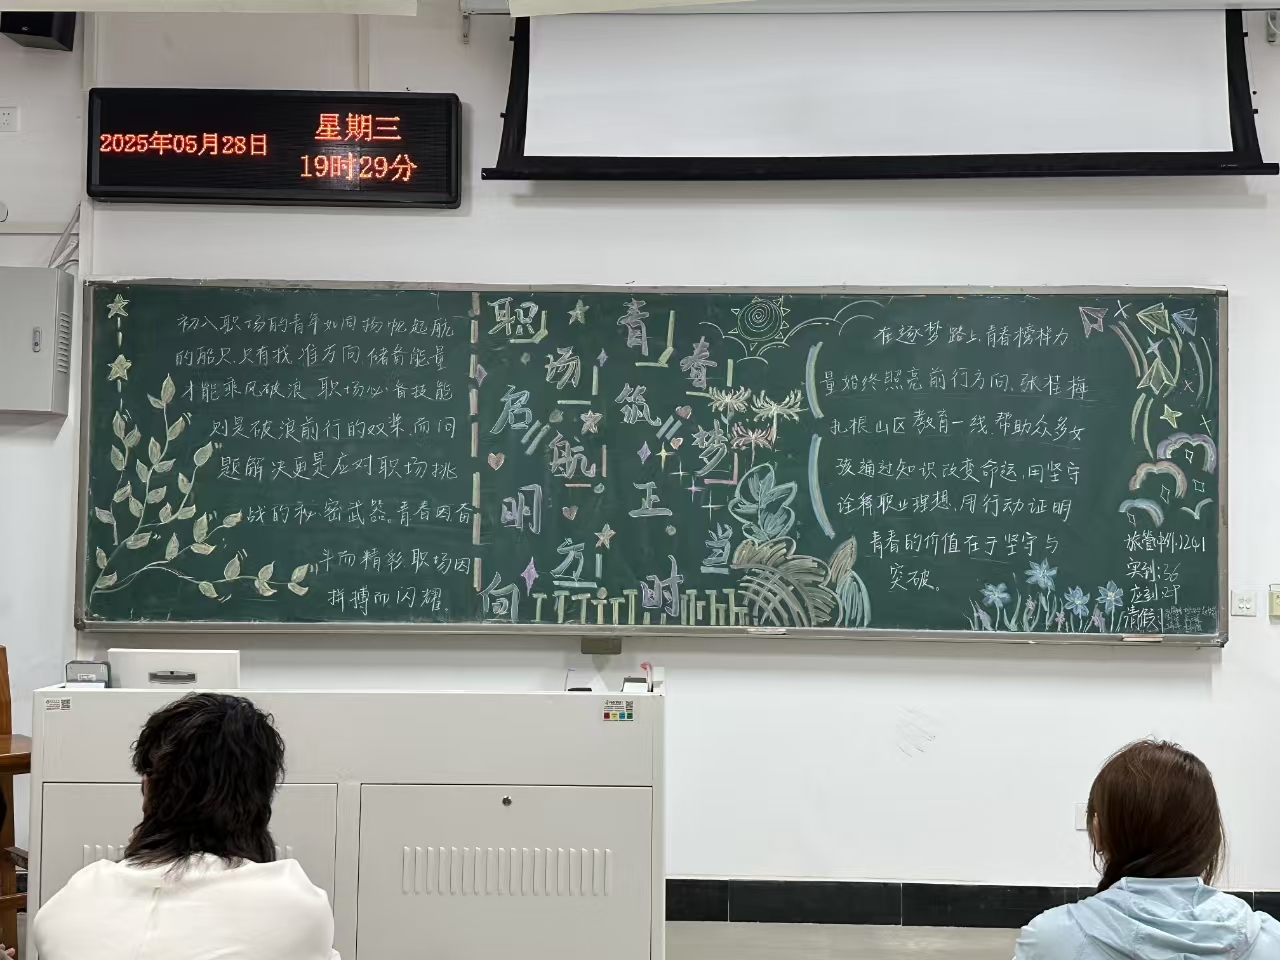 2025年05月28日
星期三
19时29分
初入职场的青年如同扬帆起航
的船只,只有找准方向,储备能量
才能乘风破浪,职场必备技能
则是破浪前行的双桨,而问
题解决更是应对职场挑
战的秘密武器。青春因奋
斗而精彩,职场因
拼搏而闪耀。
职场启航明方向
青春筑梦正当时
在逐梦路上,青春榜样力
量始终照亮前行方向,张桂梅
扎根山区教育一线,帮助众多女
孩通过知识改变命运,用坚守
诠释职业理想,用行动证明
青春的价值在于坚守与
突破。
旅管中外1241
实到:36
应到:
请假: